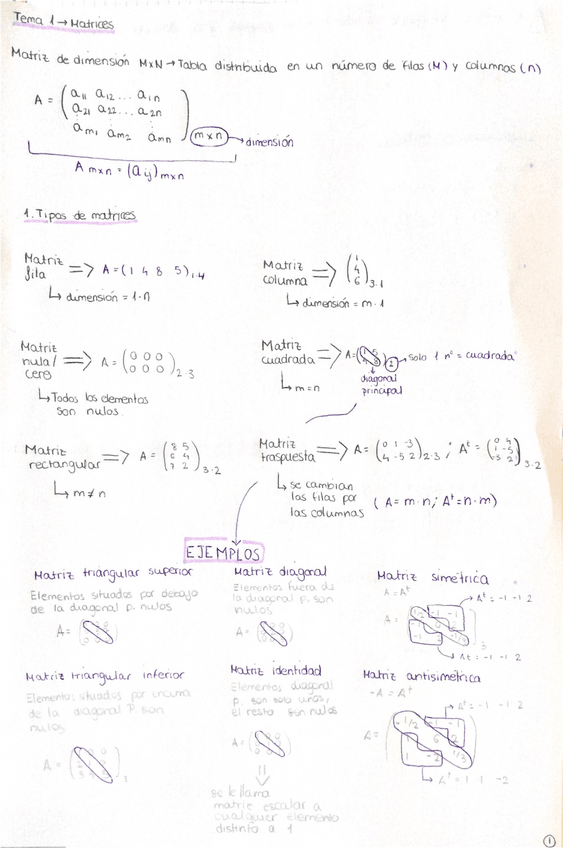 Tema 1 → Matrices
Matriz de dimensión M×N → Tabla distribuida en un número de filas (M) y columnas (n)
A = ( a11 a12 ... a1n
a21 a22 ... a2n
am1 am2 amn ) m×n → dimensión
A m×n = (a ij) m×n
1. Tipos de matrices
Matriz fila => A = (1 4 8 5) 1·4
↳ dimensión = 1·n
Matriz columna => ( 1 4 6 ) 3·1
↳ dimensión = m·1
Matriz nula/cero => A = ( 0 0 0
0 0 0 ) 2·3
↳ Todos los elementos
son nulos.
Matriz cuadrada => A = 2 → solo 1 nº = cuadrada
↳ m = n
diagonal
principal
Matriz rectangular => A = ( 8 5
6 4
7 2 ) 3·2
↳ m ≠ n
Matriz traspuesta => A = ( 0 1 -3
4 -5 2 ) 2·3 ; At = ( 0 4
1 -5
-3 2 ) 3·2
↳ se cambian
las filas por
las columnas
( A = m·n; At = n·m )
EJEMPLOS
Matriz triangular superior
Elementos situados por debajo
de la diagonal p. nulos
A =
Matriz diagonal
Elementos fuera de
la diagonal p. son
nulos
A =
Matriz simétrica
A = At
→ At = -1 -1 2
A =
3
→ At = -1 -1 2
Matriz triangular inferior
Elementos situados por encima
de la diagonal P. son
nulos
A =
Matriz identidad
Elementos diagonal
p. son solo unos,
el resto son nulos
A =
se le llama
matriz escalar a
cualquier elemento
distinto a 1
Matriz antisimétrica
-A = At
→ At = -1 -1 2
A =
↳ At = 1 1 -2
1